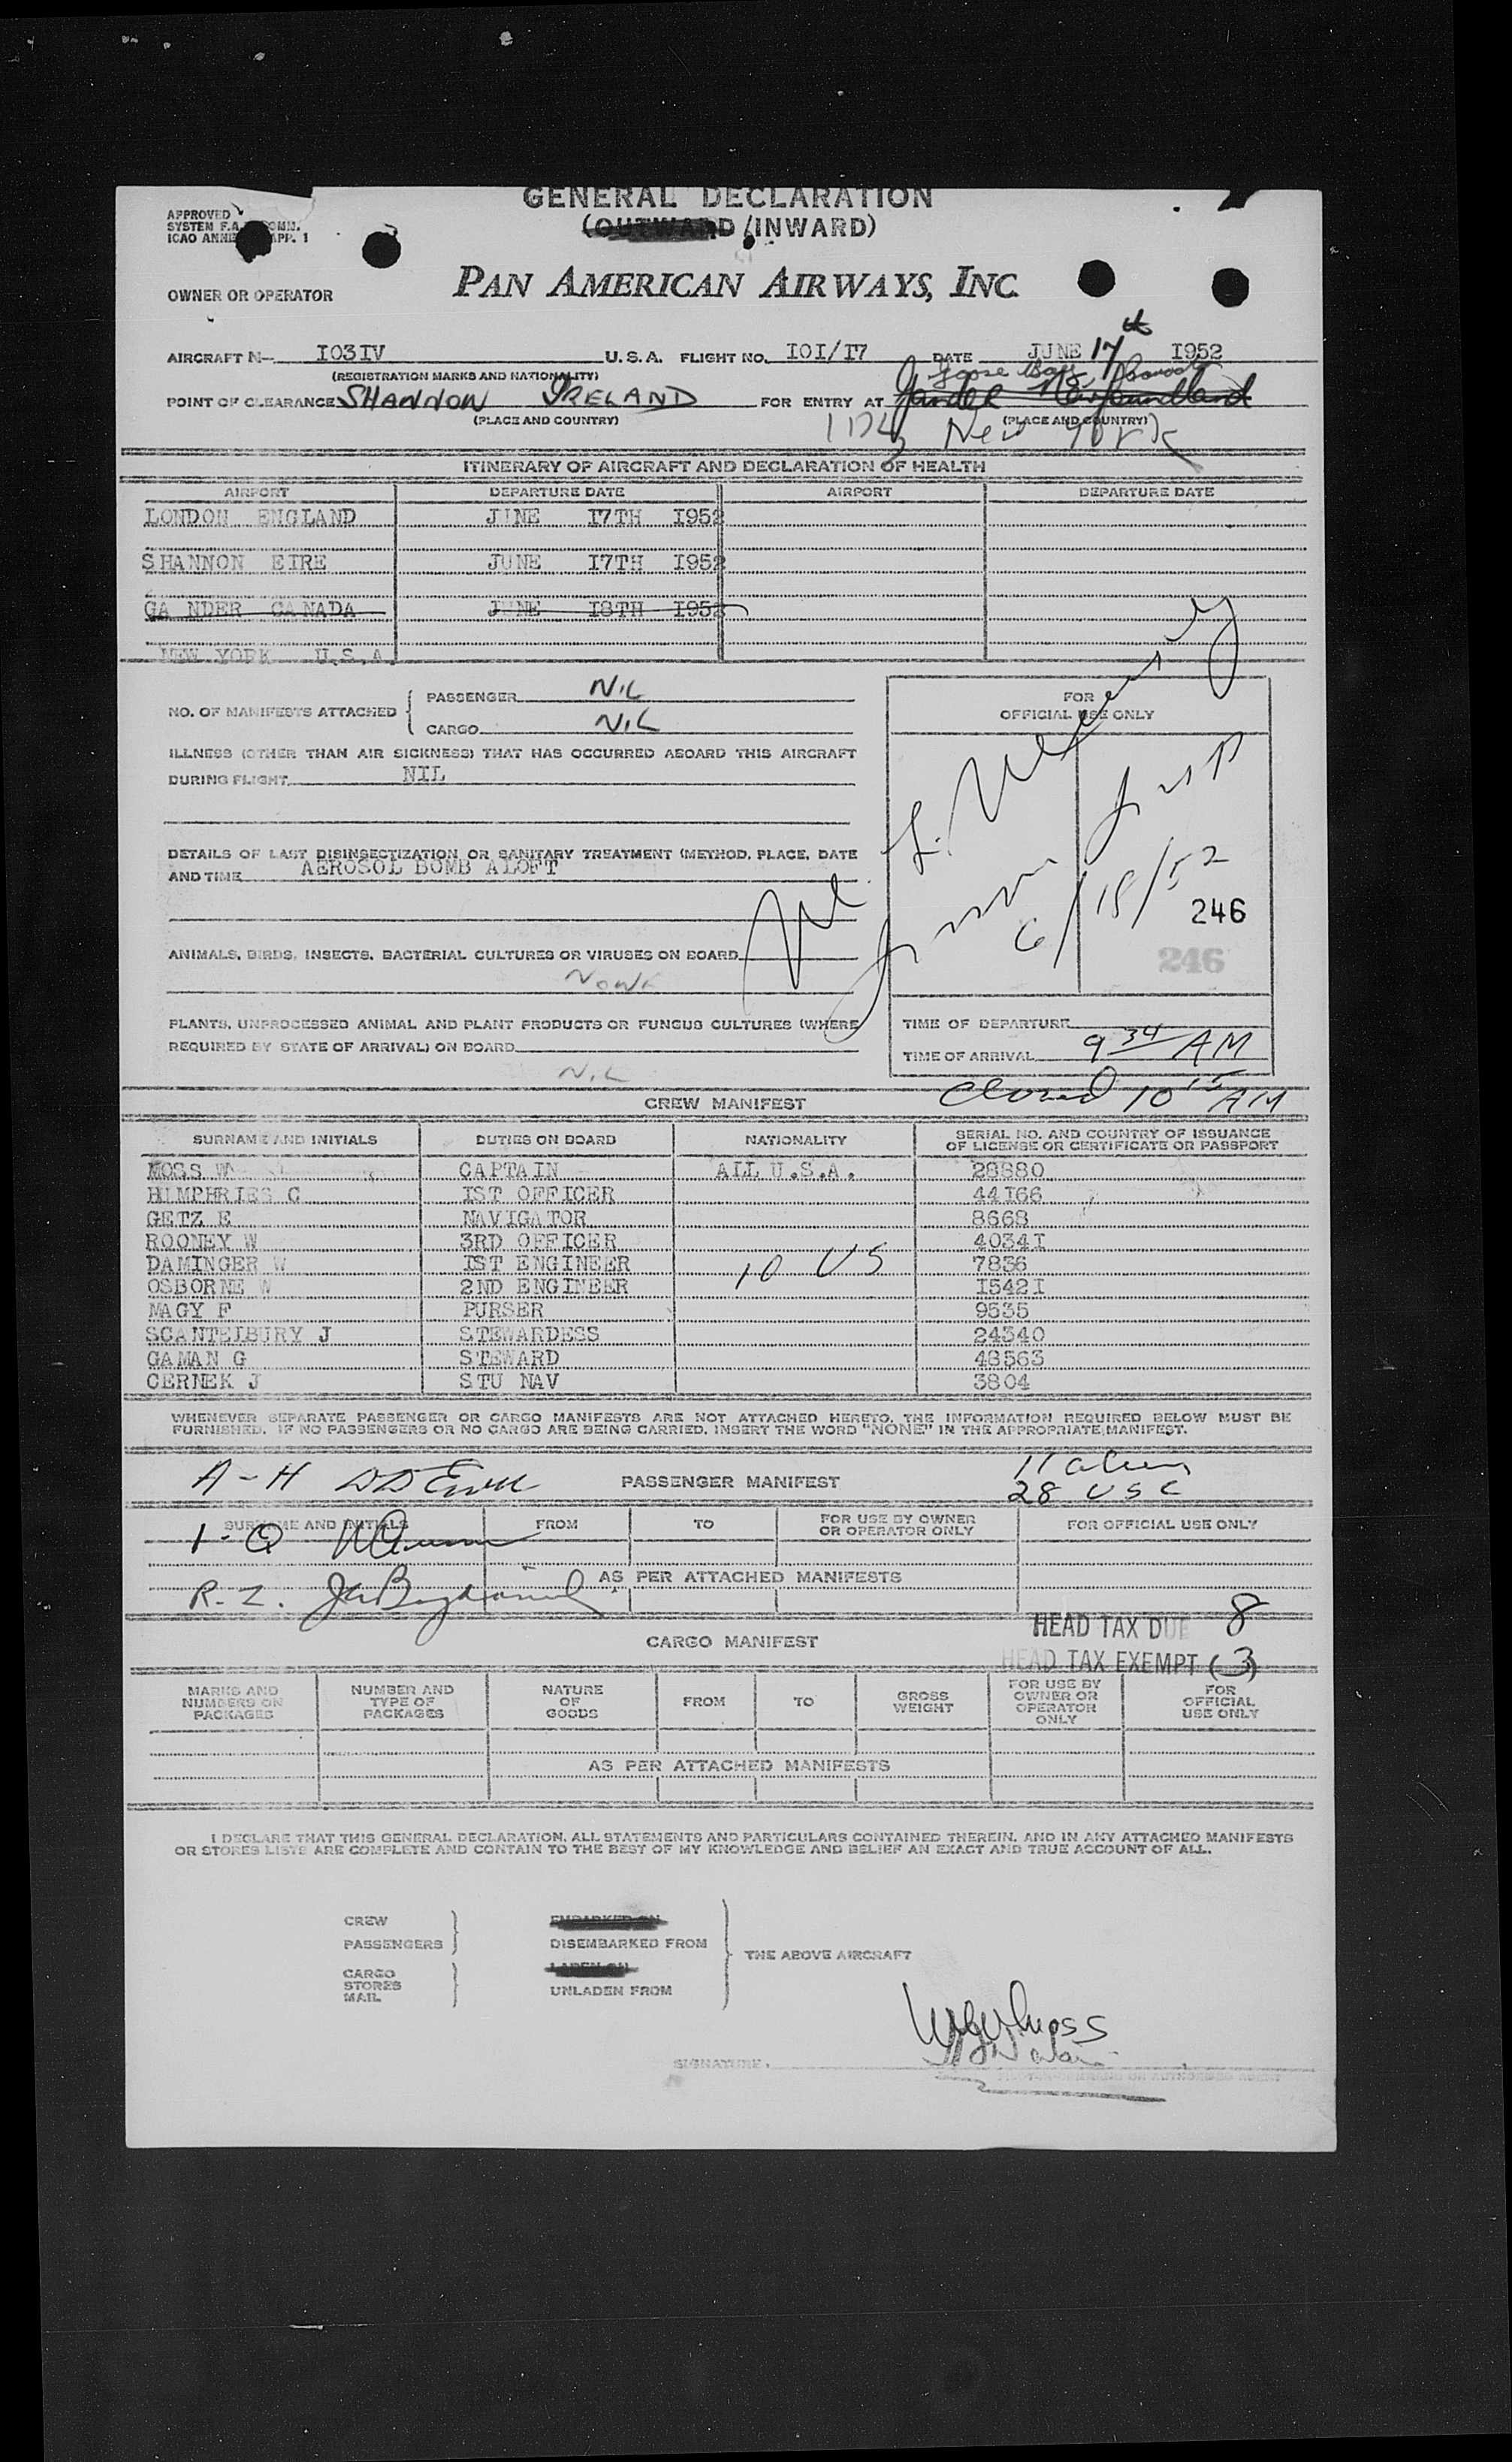 GENERAL DECLARATION
(OUTWARD/INWARD)
APPROVED
SYSTEM F.A. COMM.
ICAO ANNE APP. 1
OWNER OR OPERATOR PAN AMERICAN AIRWAYS, INC.
AIRCRAFT N- I03IV U.S.A. FLIGHT NO. I0I/I7 DATE JUNE 17th I952
(REGISTRATION MARKS AND NATIONALITY)
Goose Bay
POINT OF CLEARANCE SHANNON IRELAND FOR ENTRY AT Gander Newfoundland
(PLACE AND COUNTRY) (PLACE AND COUNTRY)
New York
ITINERARY OF AIRCRAFT AND DECLARATION OF HEALTH
AIRPORT DEPARTURE DATE AIRPORT DEPARTURE DATE
LONDON ENGLAND JUNE I7TH I952
SHANNON EIRE JUNE I7TH I952
GA NDER CANADA JUNE I8TH I952
NEW YORK U.S.A.
NO. OF MANIFESTS ATTACHED
PASSENGER NIL
CARGO NIL
ILLNESS (OTHER THAN AIR SICKNESS) THAT HAS OCCURRED ABOARD THIS AIRCRAFT
DURING FLIGHT NIL
DETAILS OF LAST DISINSECTIZATION OR SANITARY TREATMENT (METHOD, PLACE, DATE
AND TIME AEROSOL BOMB ALOFT
ANIMALS, BIRDS, INSECTS, BACTERIAL CULTURES OR VIRUSES ON BOARD
NONE
PLANTS, UNPROCESSED ANIMAL AND PLANT PRODUCTS OR FUNGUS CULTURES (WHERE
REQUIRED BY STATE OF ARRIVAL) ON BOARD
NIL
FOR
OFFICIAL USE ONLY
6/18/52
246
246
TIME OF DEPARTURE
TIME OF ARRIVAL 9 34 AM
Closed 10 15 AM
CREW MANIFEST
SURNAME AND INITIALS DUTIES ON BOARD NATIONALITY SERIAL NO. AND COUNTRY OF ISSUANCE
OF LICENSE OR CERTIFICATE OR PASSPORT
MOSS W CAPTAIN ALL U.S.A. 28880
HUMPHRIES C IST OFFICER 44I66
GETZ E NAVIGATOR 8668
ROONEY W 3RD OFFICER 4034I
DAMINGER W IST ENGINEER 10 US 7836
OSBORNE W 2ND ENGINEER I542I
NAGY F PURSER 9535
SCANTELBURY J STEWARDESS 24340
GAMAN G STEWARD 48563
CERNEK J STU NAV 3804
WHENEVER SEPARATE PASSENGER OR CARGO MANIFESTS ARE NOT ATTACHED HERETO, THE INFORMATION REQUIRED BELOW MUST BE
FURNISHED. IF NO PASSENGERS OR NO CARGO ARE BEING CARRIED, INSERT THE WORD "NONE" IN THE APPROPRIATE MANIFEST.
A-H PASSENGER MANIFEST 11 alien
28 USC
SURNAME AND INITIALS FROM TO FOR USE BY OWNER
OR OPERATOR ONLY FOR OFFICIAL USE ONLY
I-Q
AS PER ATTACHED MANIFESTS
R-Z.
HEAD TAX DUE 8
CARGO MANIFEST
HEAD TAX EXEMPT (3)
MARKS AND
NUMBERS ON
PACKAGES
NUMBER AND
TYPE OF
PACKAGES
NATURE
OF
GOODS
FROM TO
GROSS
WEIGHT
FOR USE BY
OWNER OR
OPERATOR
ONLY
FOR
OFFICIAL
USE ONLY
AS PER ATTACHED MANIFESTS
I DECLARE THAT THIS GENERAL DECLARATION, ALL STATEMENTS AND PARTICULARS CONTAINED THEREIN, AND IN ANY ATTACHED MANIFESTS
OR STORES LISTS ARE COMPLETE AND CONTAIN TO THE BEST OF MY KNOWLEDGE AND BELIEF AN EXACT AND TRUE ACCOUNT OF ALL.
CREW EMBARKED ON
PASSENGERS DISEMBARKED FROM
THE ABOVE AIRCRAFT
CARGO LADEN ON
STORES
MAIL UNLADEN FROM
Moss
SIGNATURE.